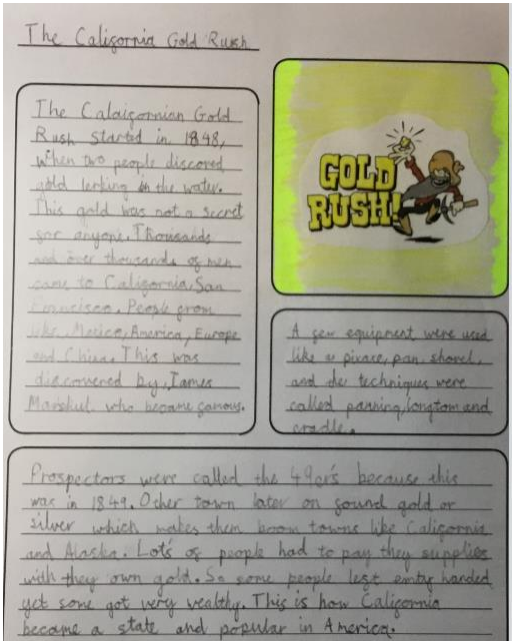 The California Gold Rush
The Calaifornian Gold
Rush started in 1848,
When two people discored
gold lerking in the water.
This gold was not a secret
for anyone. Thousands
and over thousands of men
came to California, San
Francisco. People from
like Mexico, America, Europe
and China. This was
discovered by, James
Marshul who became famous.
GOLD
RUSH!
A few equipment were used
like a pixace, pan, shovel,
and the techniques were
called panning, longtom and
cradle.
Prospectors were called the 49er's because this
was in 1849. Other town later on found gold or
silver which makes them boom towns like California
and Alaska. Lot's of people had to pay they supplies
with they own gold. So some people left emty handed
yet some got very wealthy. This is how California
became a state and popular in America.